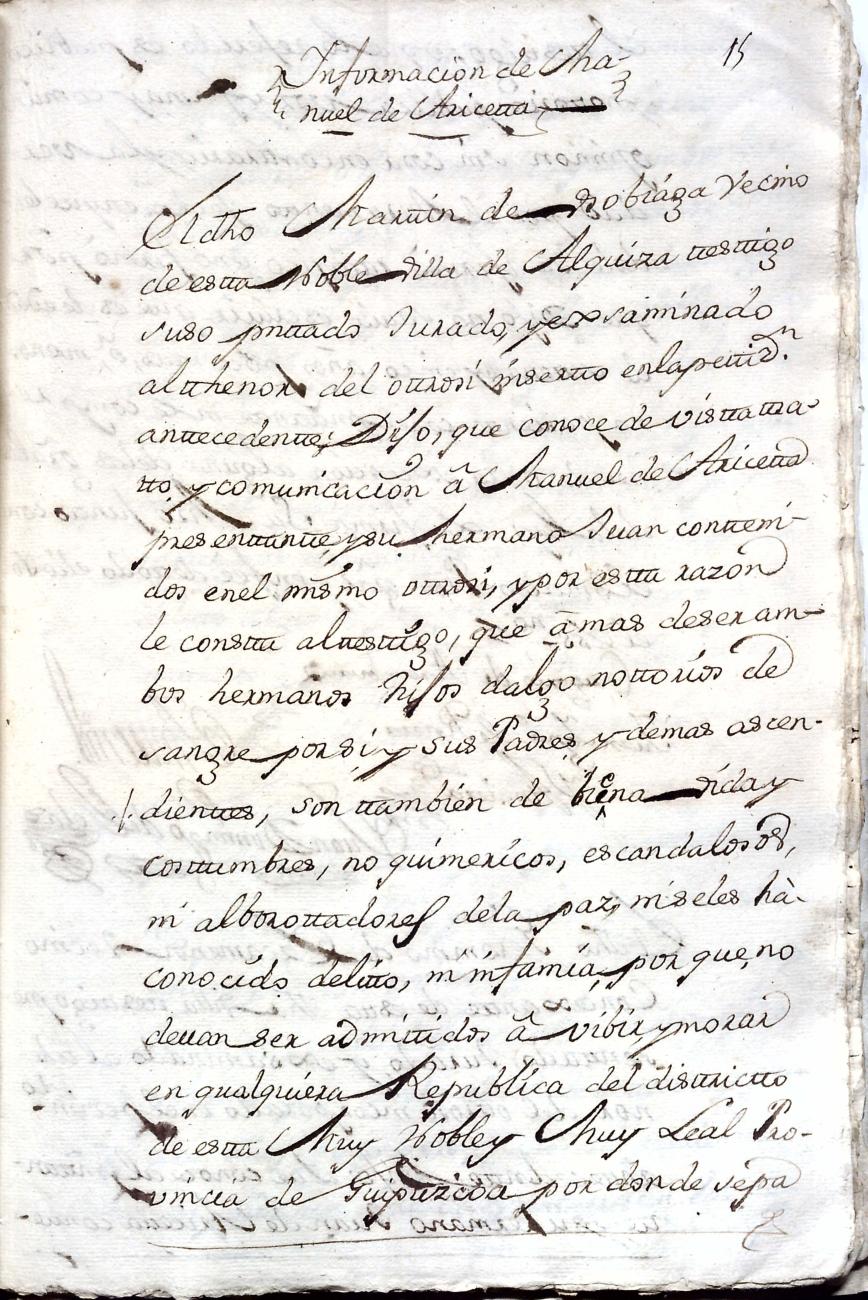 15
Informacion de Ma-
nuel de Aricetta
El dho Martin de Sobiaga Vecino
de estta Noble Villa de Alquiza ttesttigo
suso pnttado Jurado, y exsaminado
al tthenor del ottrosi insertto en la petticiôn
anttecedentte; Dijo, que conoce de vistta tra-
tto, y comunicacion â Manuel de Aricetta
presenttantte, y su hermano Juan conttení-
dos en el mismo ottrosi, y por estta razon
le constta al ttesttigo, que â mas de ser am-
bos hermanos hijos dalgo nottorios de
sangre por si y sus Padres, y demas ascen-
dienttes, son ttambien de buena vida y
costtumbres, no quimericos, escandalosos,
ni alborottadores de la paz, ni se les hà
conocido delitto, ni infamia, por que, no
devan ser admittidos â vibir, y morar
en qualquiera Republica del disttrictto
de estta Muy Noble y Muy Leal Pro-
vincia de Guipuzcoa por donde sepa